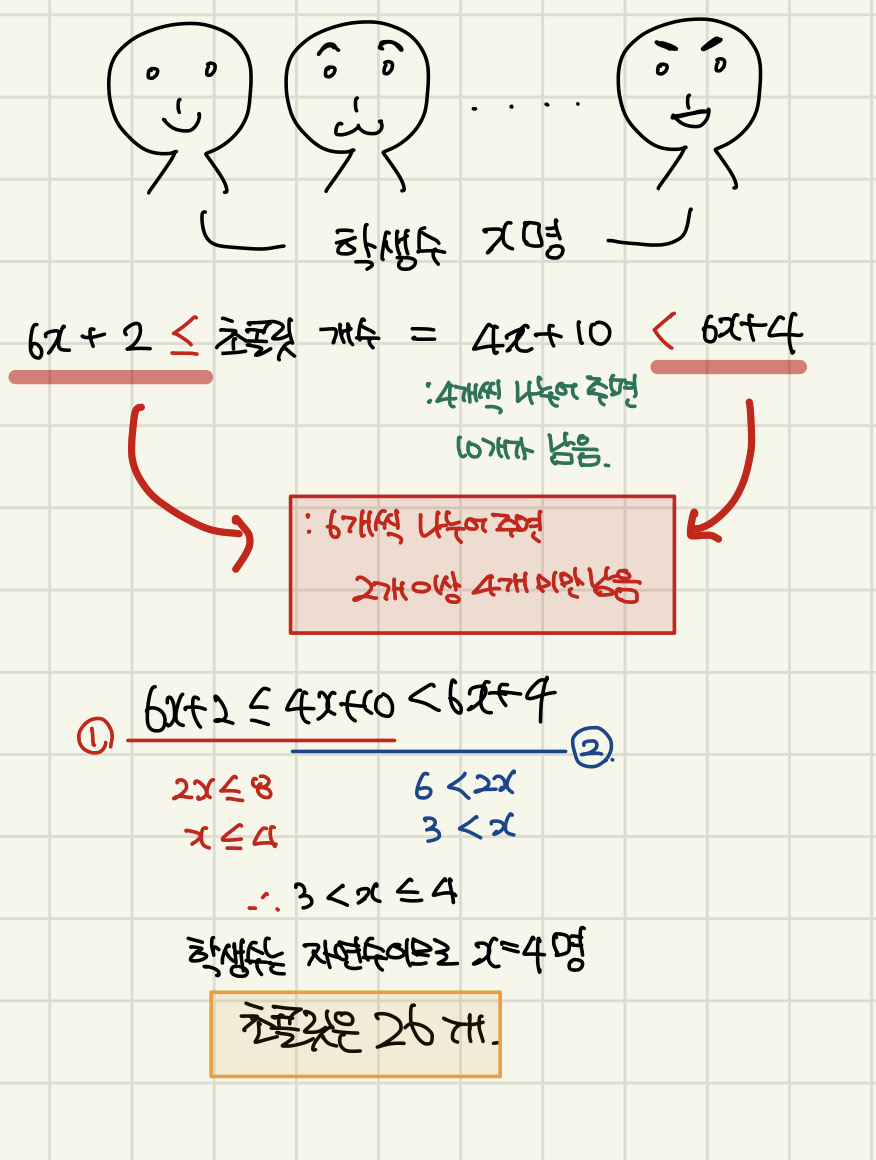 학생수 x명
6x + 2 ≤ 초콜릿 개수 = 4x+10 < 6x+4
: 4개씩 나누어 주면
10개가 남음.
: 6개씩 나누어 주면
2개 이상 4개 미만 남음
6x+2 ≤ 4x+10 < 6x+4
① ②
2x ≤ 8 6 < 2x
x ≤ 4 3 < x
∴ 3 < x ≤ 4
학생수는 자연수이므로 x=4명
초콜릿은 26개.